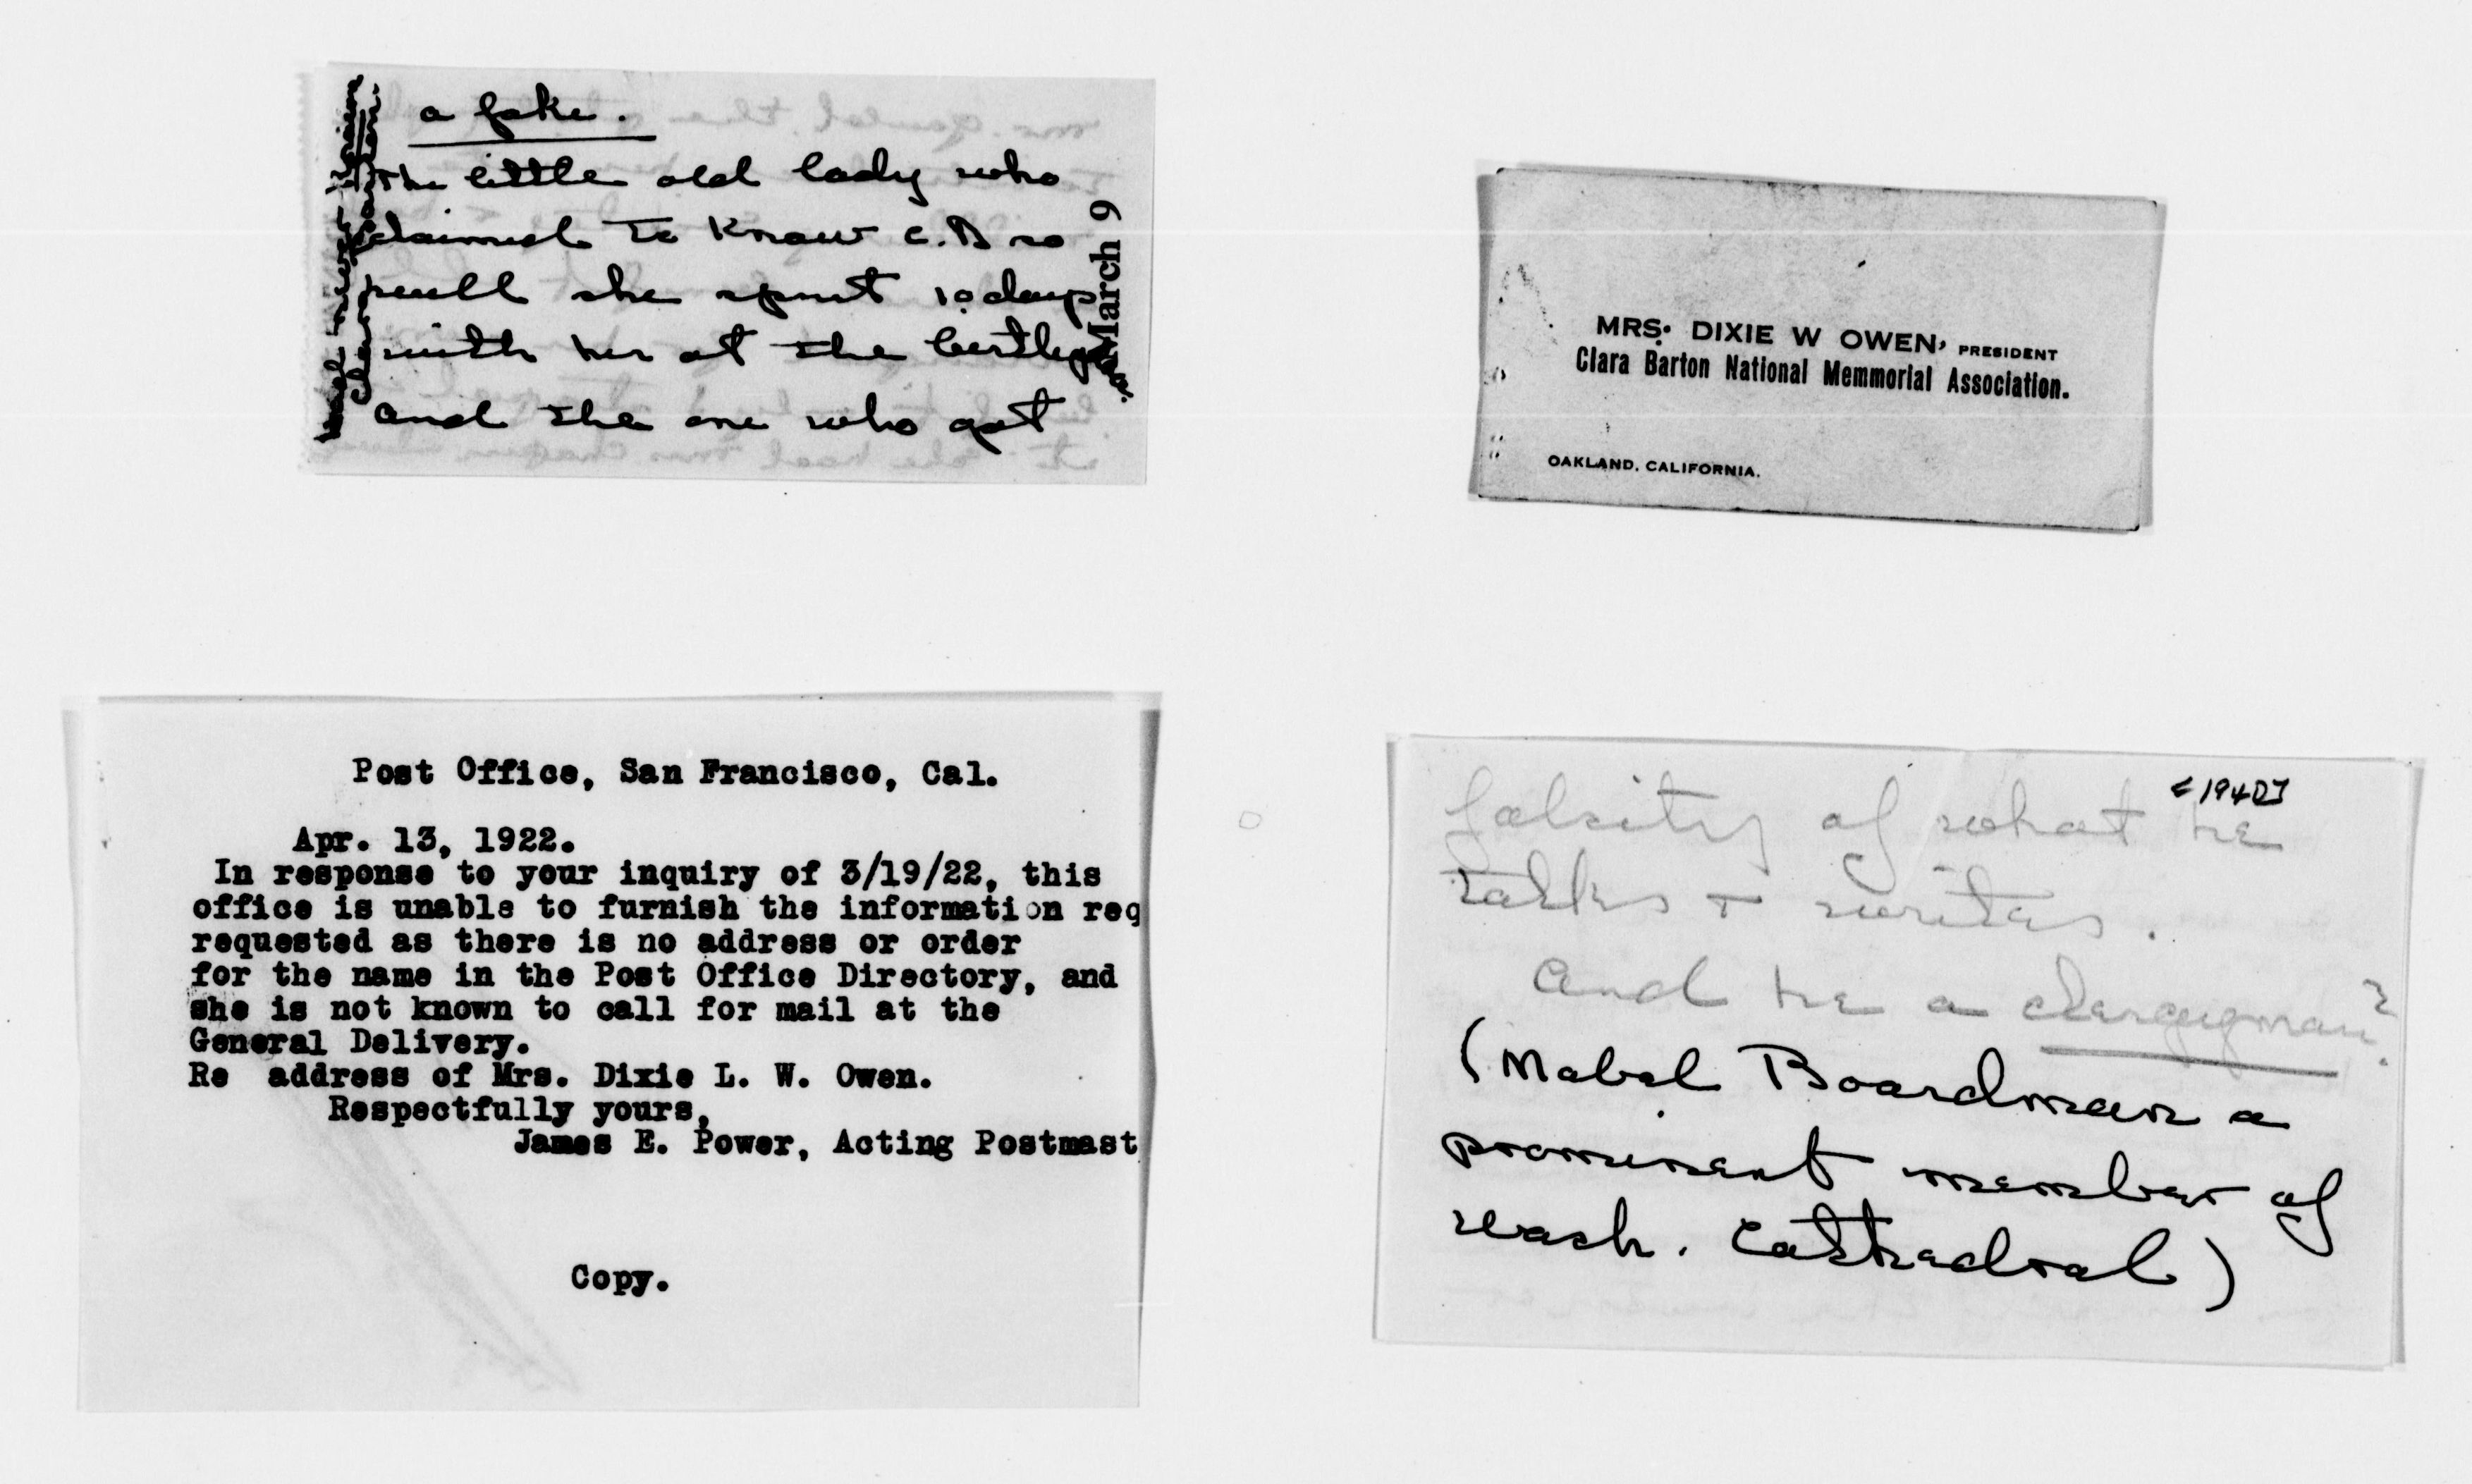 a fake.
The little old lady who
claimed to know C.B so
well she spent 10 days
with her at the birthplace.
and the one who got
had never seen
Clara Barton.
March 9
MRS. DIXIE W OWEN, PRESIDENT
Clara Barton National Memmorial Association.
OAKLAND, CALIFORNIA.
Post Office, San Francisco, Cal.
Apr. 13, 1922.
In response to your inquiry of 3/19/22, this
office is unable to furnish the information req
requested as there is no address or order
for the name in the Post Office Directory, and
she is not known to call for mail at the
General Delivery.
Re address of Mrs. Dixie L. W. Owen.
Respectfully yours,
James E. Power, Acting Postmast
Copy.
falsity of what he
talks + writes.
And he a clergyman?
(Mabel Boardman a
prominent member of
Wash. Cathedral)